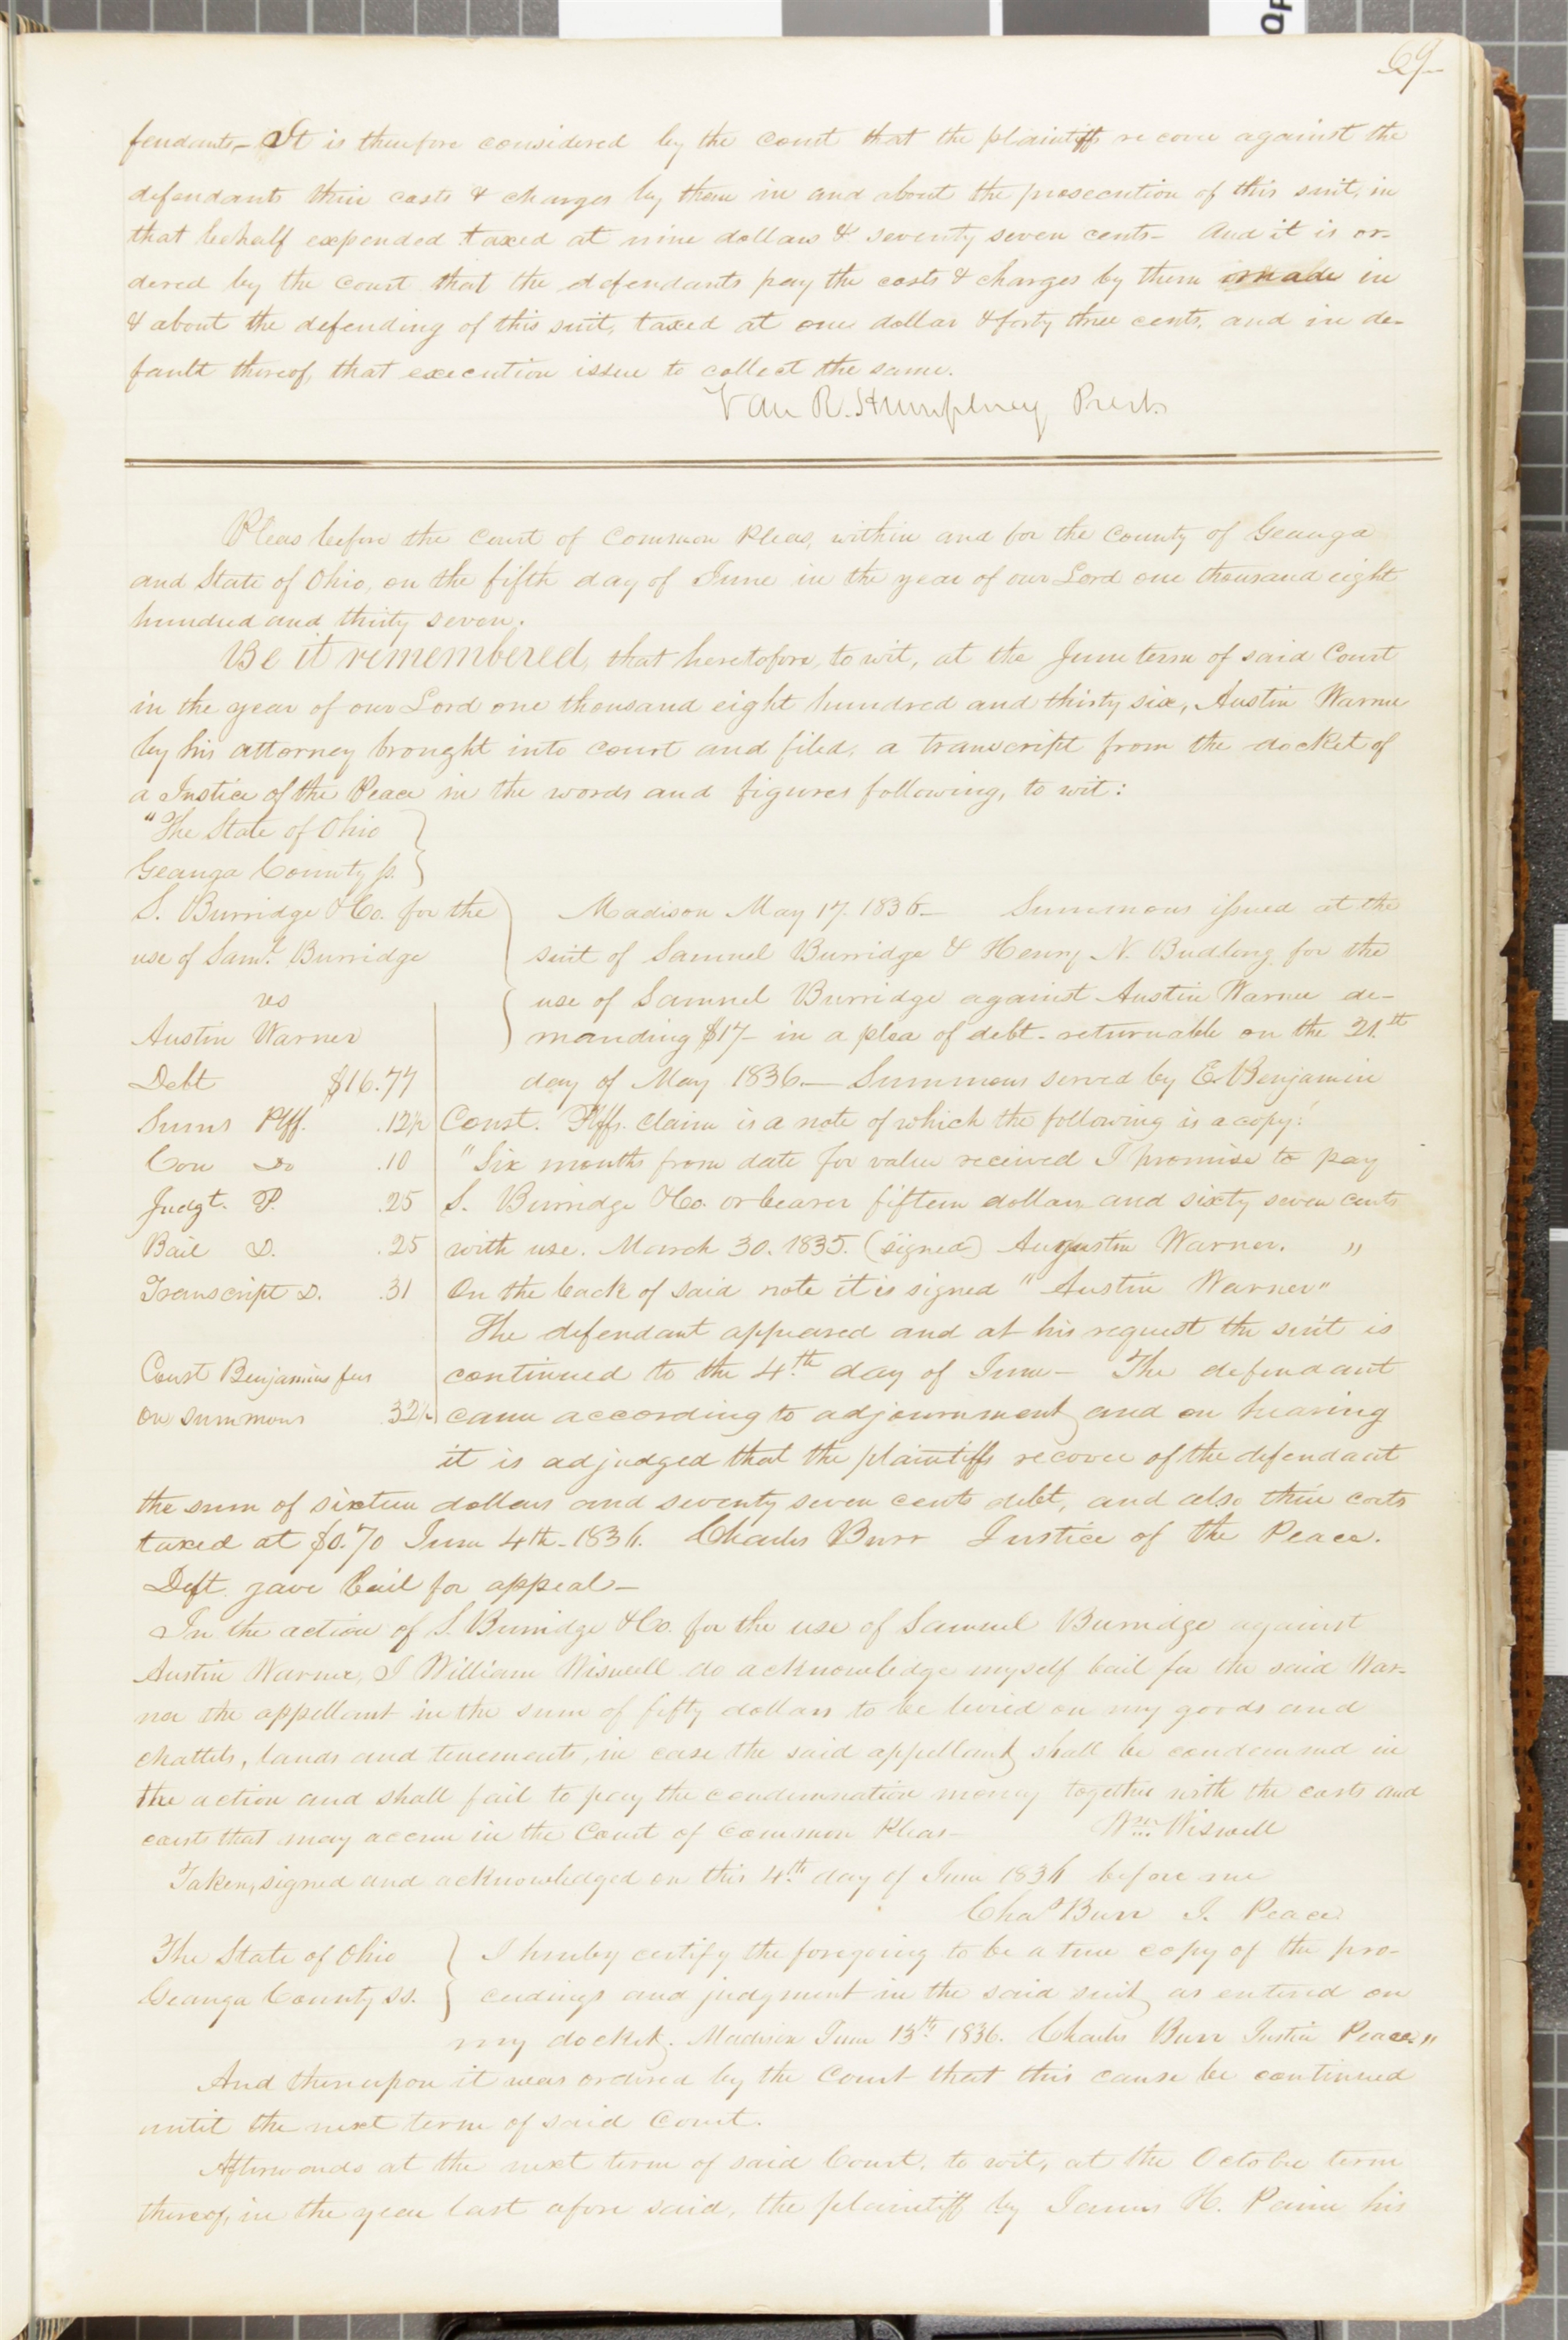 69
fendants,- It is therefore considered by the court that the plaintiffs recover against the
defendants their costs & charges by them in and about the prosecution of this suit, in
that behalf expended taxed at nine dollars & seventy seven cents- And it is or-
dered by the court that the defendants pay the costs & charges by them made in
& about the defending of this suit, taxed at one dollar & forty three cents, and in de-
fault thereof, that execution issue to collect the same.
Van R. Humphrey Prest.
Pleas before the Court of Common Pleas, within and for the County of Geauga
and State of Ohio, on the fifth day of June in the year of our Lord one thousand eight
hundred and thirty seven.
Be it remembered, that heretofore, to wit, at the June term of said Court
in the year of our Lord one thousand eight hundred and thirty six, Austin Warner
by his attorney brought into court and filed, a transcript from the docket of
a Justice of the Peace in the words and figures following, to wit:
"The State of Ohio
Geauga County ss.
S. Burridge & Co. for the
use of Saml. Burridge
vs
Austin Warner
Debt $16.77
Sums Plff. .12½
Con Do .10
Judgt. P. .25
Bail D. .25
Transcript D. .31
Const Benjamins fees
on summons .32½
Madison May 17. 1836- Summons issued at the
suit of Samuel Burridge & Henry N. for the
use of Samuel Burridge against Austin Warner de-
manding $17- in a plea of debt- returnable on the 21st
day of May 1836.- Summons served by E. Benjamin
Const. Plffs. claim is a note of which the following is a copy:
"Six months from date for value received I promise to pay
S. Burridge & Co. or bearer fifteen dollars and sixty seven cents
with use. March 30. 1835. (signed) Augustin Warner. "
On the back of said note it is signed "Austin Warner"
The defendant appeared and at his request the suit is
continued to the 4th day of June- The defendant
came according to adjournment and on hearing
it is adjudged that the plaintiffs recover of the defendant
the sum of sixteen dollars and seventy seven cents debt, and also their costs
taxed at $0.70 June 4th- 1836. Charles Burr Justice of the Peace.
Deft. gave bail for appeal-
In the action of S. Burridge & Co. for the use of Samuel Burridge against
Austin Warner, I William Wiswell do acknowledge myself bail for the said War-
ner the appellant in the sum of fifty dollars to be levied on my goods and
chattels, lands and tenements, in case the said appellant shall be condemned in
the action and shall fail to pay the condemnation money together with the costs and
costs that may accrue in the Court of Common Pleas- Wm. Wiswell
Taken, signed and acknowledged on this 4th day of June 1836 before me
Chas Burr J. Peace
The State of Ohio
Geauga County ss.
I hereby certify the foregoing to be a true copy of the pro-
ceedings and judgment in the said suit, as entered on
my docket. Madison June 13th 1836. Charles Burr Justice Peace."
And thereupon it was ordered by the Court that this cause be continued
until the next term of said Court.
Afterwards at the next term of said Court, to wit, at the October term
thereof, in the year last afore said, the plaintiff by James H. Paine his